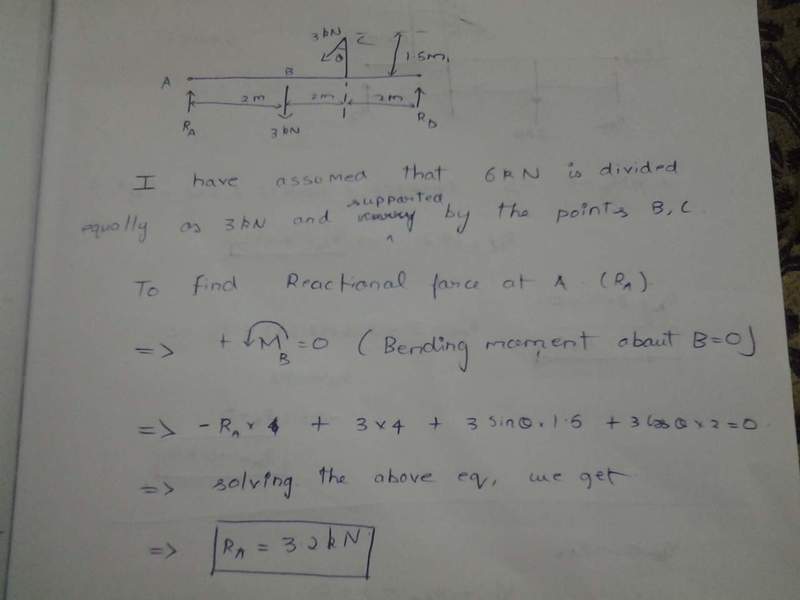 3kN C
θ 1.5m
A B
2m 2m 2m
R_A 3kN R_D
I have assumed that 6kN is divided
supported
equally as 3kN and by the points B, C.
To find Reactional force at A (R_A)
=> + M_B = 0 (Bending moment about B=0)
=> - R_A × 4 + 3×4 + 3 sinθ × 1.5 + 3 cosθ × 2 = 0
=> solving the above eq, we get
=> R_A = 3.2kN